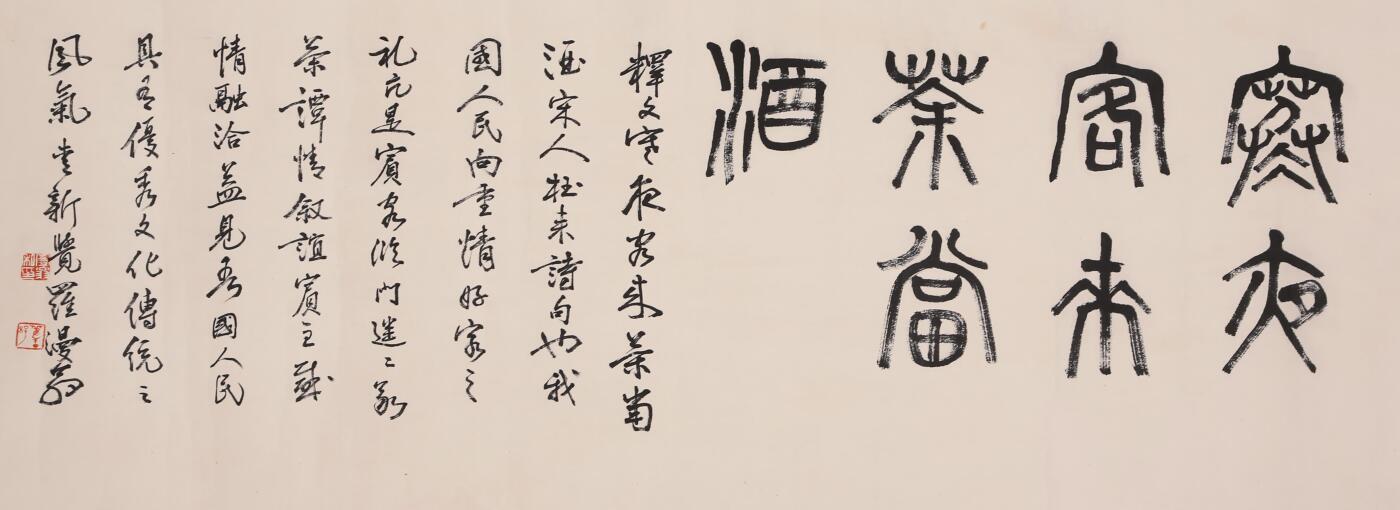 寒夜
客来
茶當
酒
釋文寒夜客来茶當
酒宋人杜耒詩句也我
國人民向重情好客之
礼凡是賓客臨門進之
茶譚情叙誼賓主
情融洽益見吾國人民
具有優秀文化傳統之
風氣 新覽羅漫翁